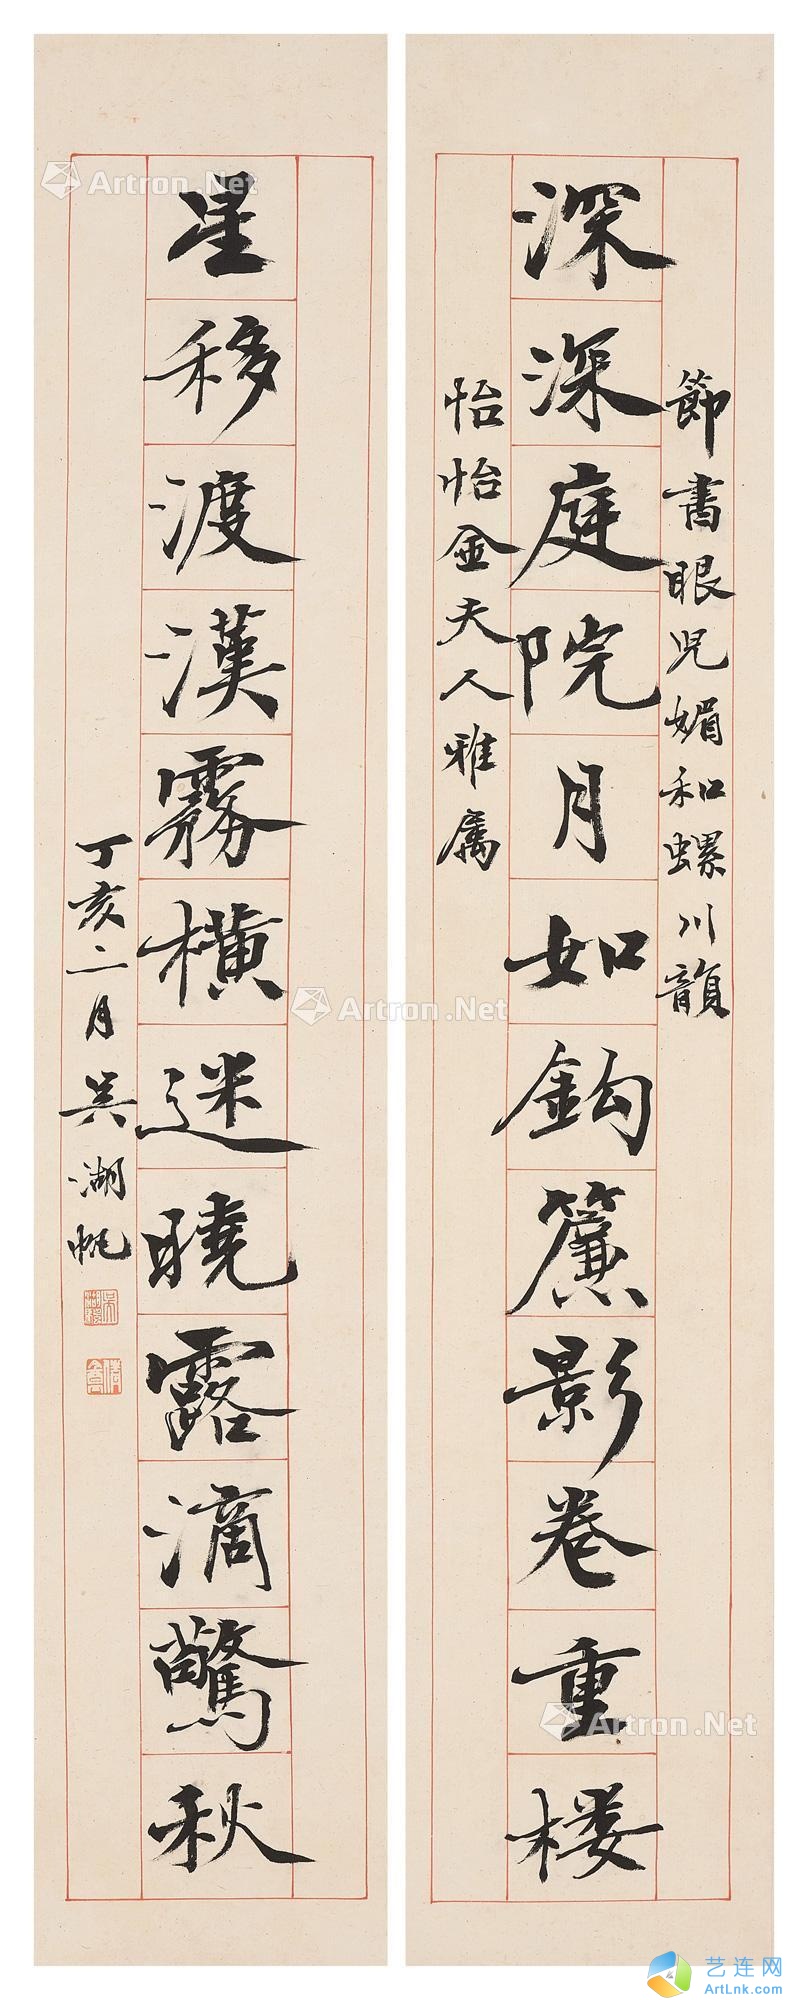 深深庭院月如鈎簾影卷重楼
節書眼児媚和螺川韻
怡怡金夫人雅属
星移渡漢霧橫迷曉露滴驚秋
丁亥二月吴湖帆
Artron.Net
Artron.Net
Artron.Net
艺连网
ArtLnk.com